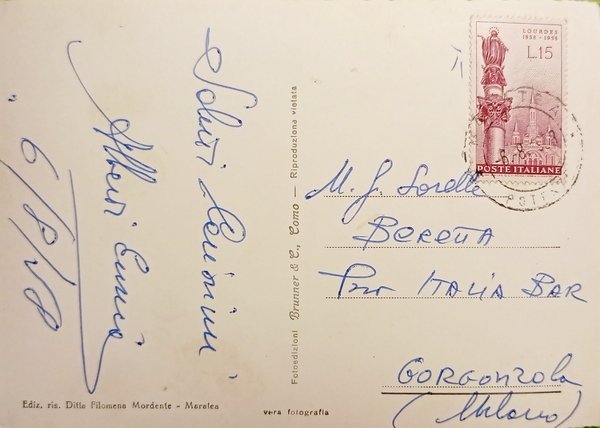 Saluti
Alberti Ennio
6/8/58
Ediz. ris. Ditta Filomena Mordente - Maratea
vera fotografia
Fotoedizioni Brunner & C., Como — Riproduzione vietata
LOURDES
1858 - 1958
L.15
POSTE ITALIANE
M. G. Sorelle
BERETTA
ITALIA BAR
GORGONZOLA
(Milano)